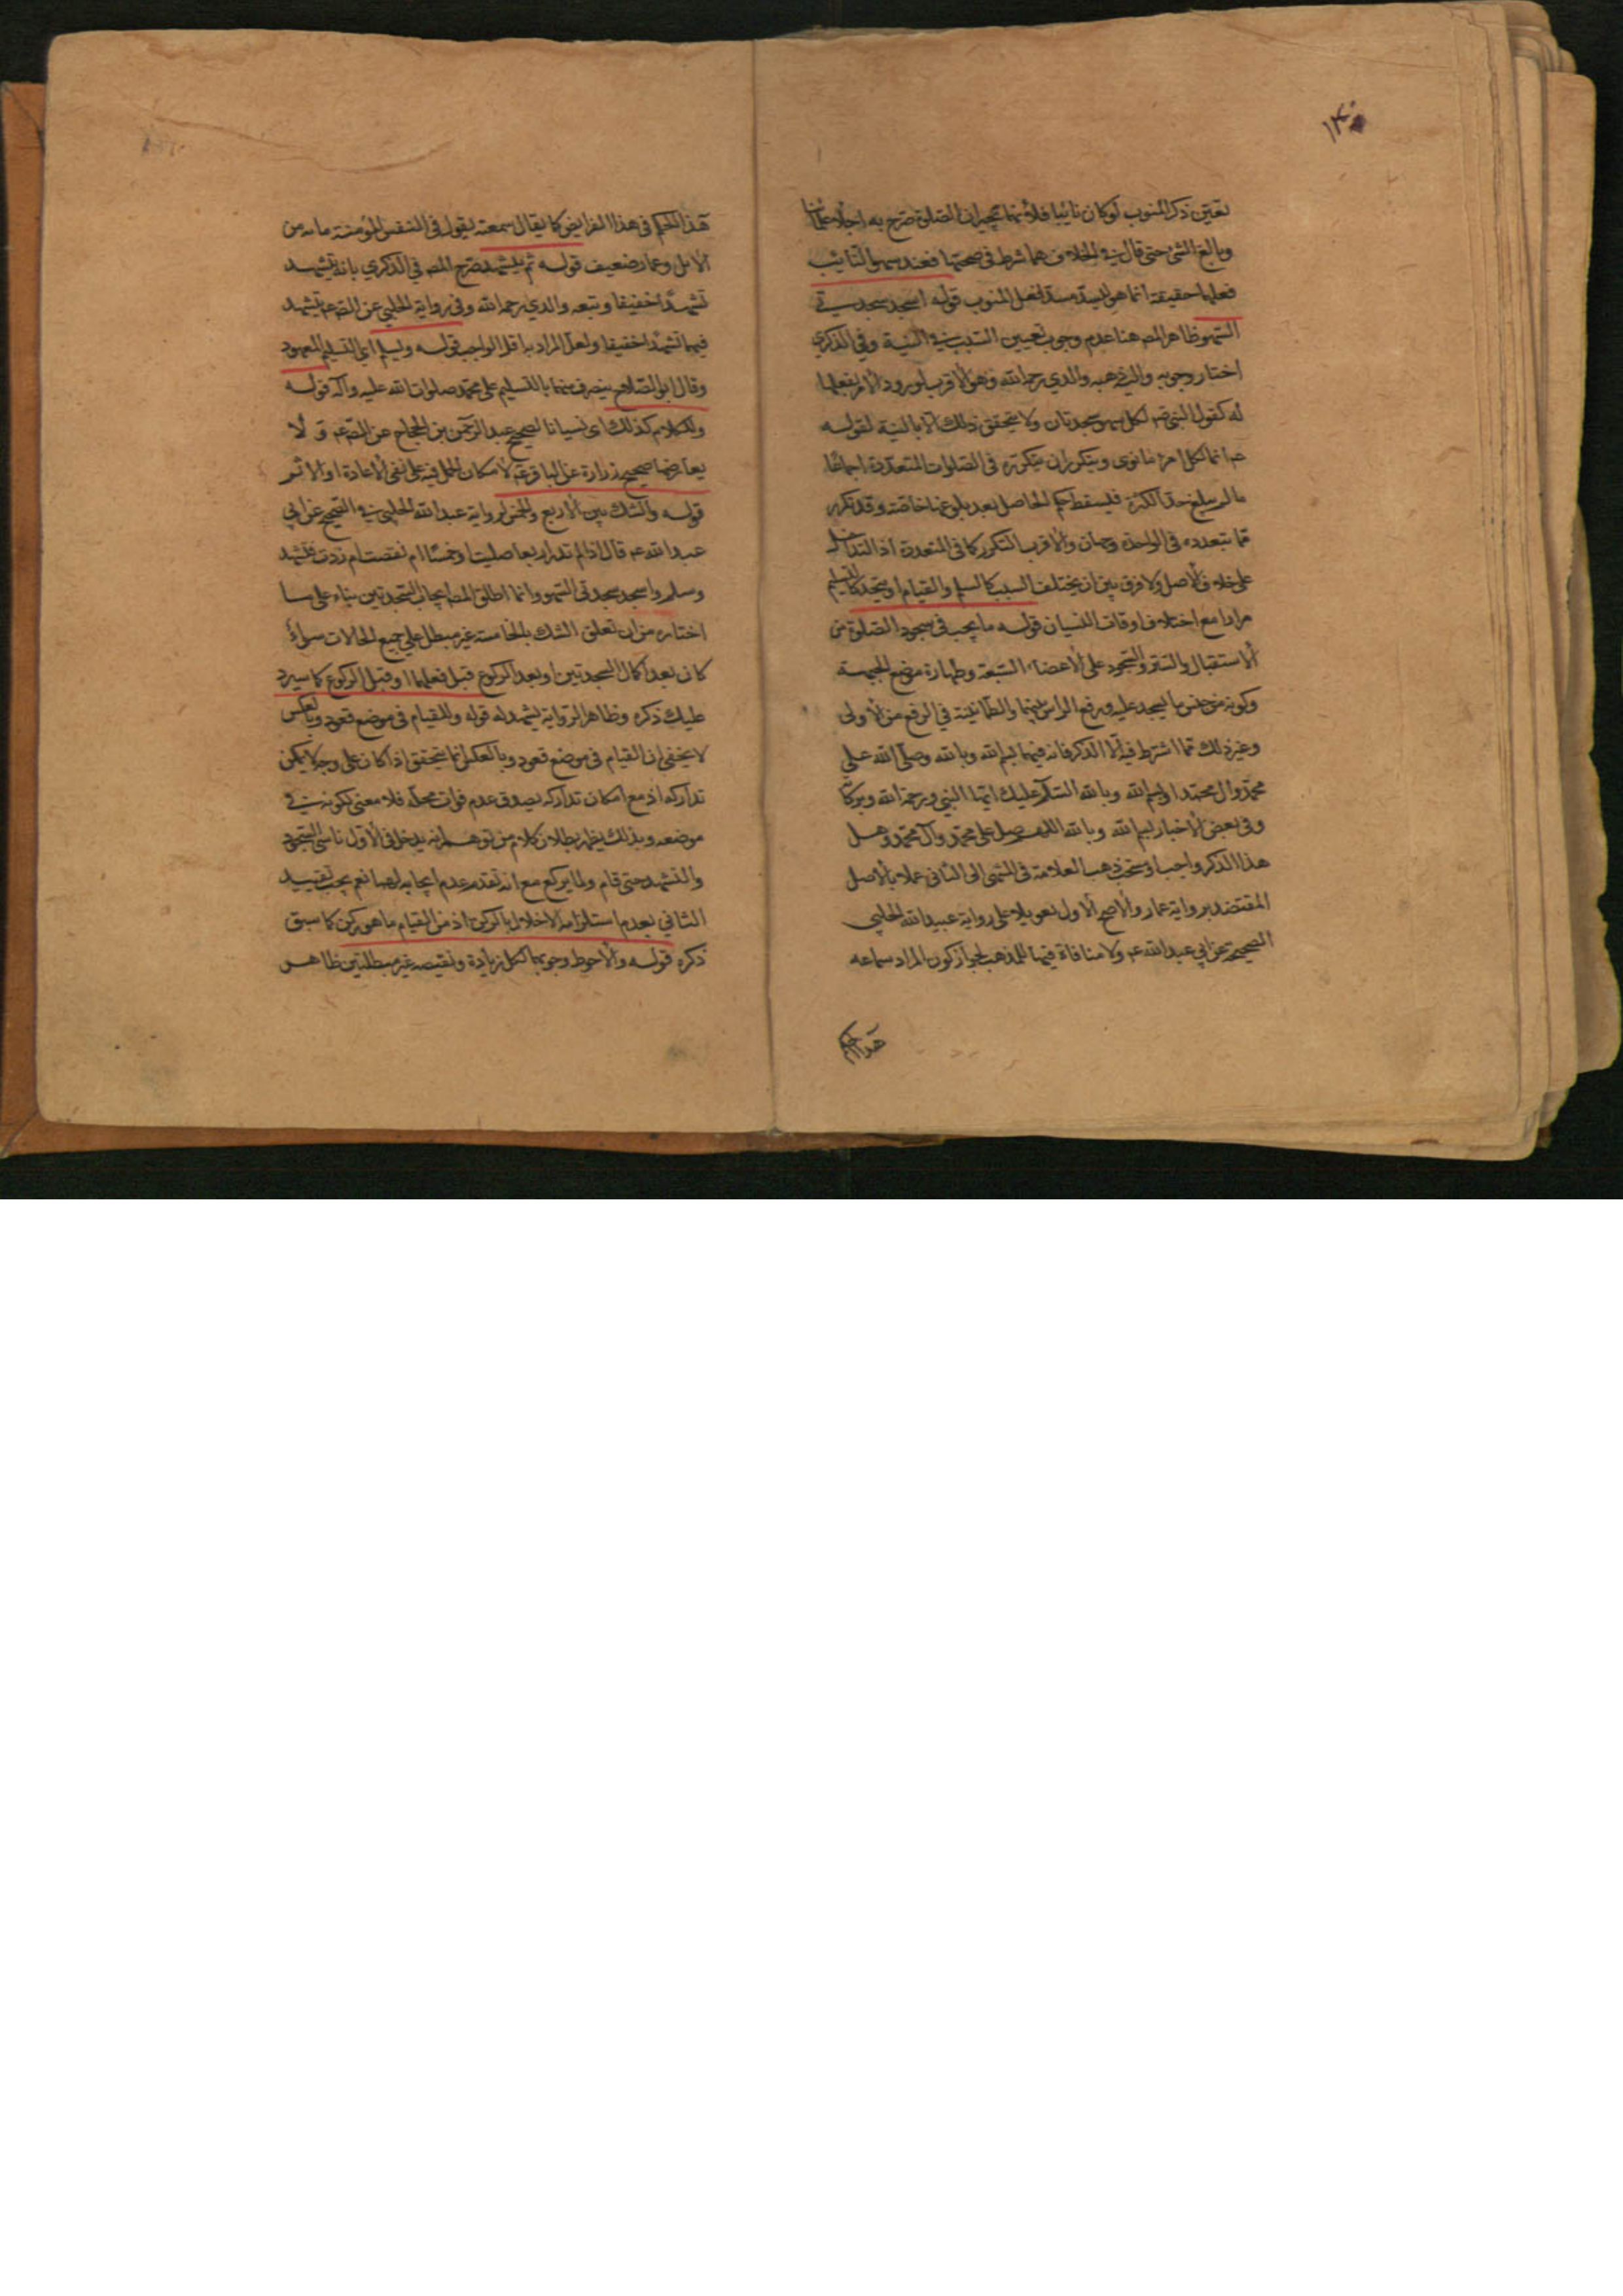 ١٣٠
تعين ذكر المنوب لوكان نائبا فلأنهما تجبران الصلوة صرح به اجلاء علمائنا
وبالغ الشيخ حتى قال في الخلاف هما شرط في صحتها فعند سهو النائب
فعلهما حقيقة انما هو ليسد مسد لفعل المنوب قوله اسجد سجدتي
السهو ظاهر المص هنا عدم وجوب تعيين السبب في النية وفي الذكرى
اختار وجوبه واليه ذهب والدي رحمه الله وهو الأقرب لورود الأمر بفعلهما
له كقول النبي ص لكل سهو سجدتان ولا يتحقق ذلك الا بالنية لقوله
ع انما لكل امرء ما نوى ويتكرران بتكرره في الصلوات المتعددة اجماعا
ما لم يبلغ حد الكثرة فيسقط حكم الحاصل بعد بلوغها خاصة وقد تكرر
مما بتعدده في الواحدة وجهان والأقرب التكرر كما في المتعددة اذ التداخل
على خلاف الأصل ولا فرق بين ان يختلف السبب كالتسليم والقيام او يتحد كالتسليم
مرارا مع اختلاف اوقات النسيان قوله ما يجب في سجود الصلوة من
الاستقبال والستر والسجود على الأعضاء السبعة وطهارة موضع الجبهة
وكونه من جنس ما يسجد عليه ورفع الراس بينهما والطمأنينة في الرفع من الأولى
وغير ذلك مما اشترط فيه الا الذكر فانه فيهما بسم الله وبالله وصلى الله على
محمد وال محمد او بسم الله وبالله السلام عليك ايها النبي ورحمة الله وبركاته
وفي بعض الأخبار بسم الله وبالله اللهم صل على محمد وآل محمد وهل
هذا الذكر واجب او مستحب ذهب العلامة في المنتهى الى الثاني عملا بالأصل
المعتضد برواية عمار والأصح الأول تعويلا على رواية عبيد الله الحلبي
الصحيحة عن ابي عبد الله ع ولا منافاة فيها للمذهب لجواز كون المراد سماعه
هذا الحكم
هذا الحكم في هذا الفرايض كما يقال سمعته يقول في النفس المؤمنة مائة من
الابل وعمار ضعيف قوله ثم يتشهد صرح المص في الذكرى بانه يتشهد
تشهدا خفيفا وتبعه والدي رحمه الله وفي رواية الحلبي عن الص ع تشهد
فيهما تشهدا خفيفا ولعل المراد به اقل الواجب قوله ويسلم اي التسليم المعهود
وقال ابو الصلاح ينصرف منهما بالتسليم على محمد صلوات الله عليه واله قوله
وللكلام كذلك اى نسيانا لصحيح عبد الرحمن بن الحجاج عن الص ع ولا
يعارضها صحيح زرارة عن الباقر ع لامكان الحمل فيه على نفي الاعادة او الاثم
قوله والشك بين الأربع والخمس لرواية عبد الله الحلبي في الصحيح عن ابي
عبد الله ع قال اذا لم تدر اربعا صليت او خمسا ام نقصت ام زدت فتشهد
وسلم واسجد سجدتي السهو وانما اطلق المص ايجاب السجدتين بناء على ما
اختاره من ان تعلق الشك بالخامسة غير مبطل على جميع الحالات سواء
كان بعد اكمال السجدتين او بعد الركوع قبل فعلهما او قبل الركوع كما سيرد
عليك ذكره وظاهر الرواية يشهد له قوله وللقيام في موضع قعود وبالعكس
لا يخفى ان القيام في موضع قعود وبالعكس انما يتحقق اذا كان على وجه لا يمكن
تداركه اذ مع امكان تداركه يصدق عدم فوات محله فلا معنى لكونه في
موضعه وبذلك يظهر بطلان كلام من توهم انه يدخل في الأول ناسي السجود
والتشهد حتى قام ولما يركع مع انه تقدم عدم ايجابه لهما نعم يجب تقييد
الثاني بعدم استلزامه الاخلال بالركن اذ من القيام ما هو ركن كما سبق
ذكره قوله والأحوط وجوبهما لكل زيادة ونقيصه غير مبطلتين ظاهر